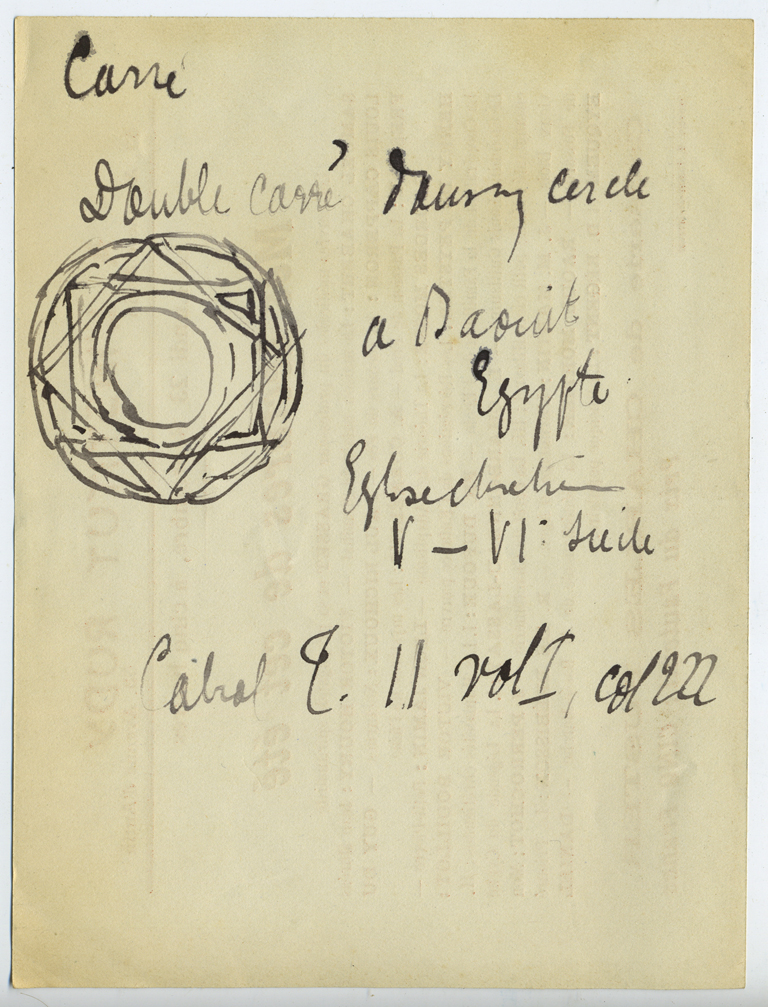 Carré
Double carré dans un cercle
a Baouit
Egypte
Eglise chretien
V – VIe siecle
Cabrol T. II vol I, col 222